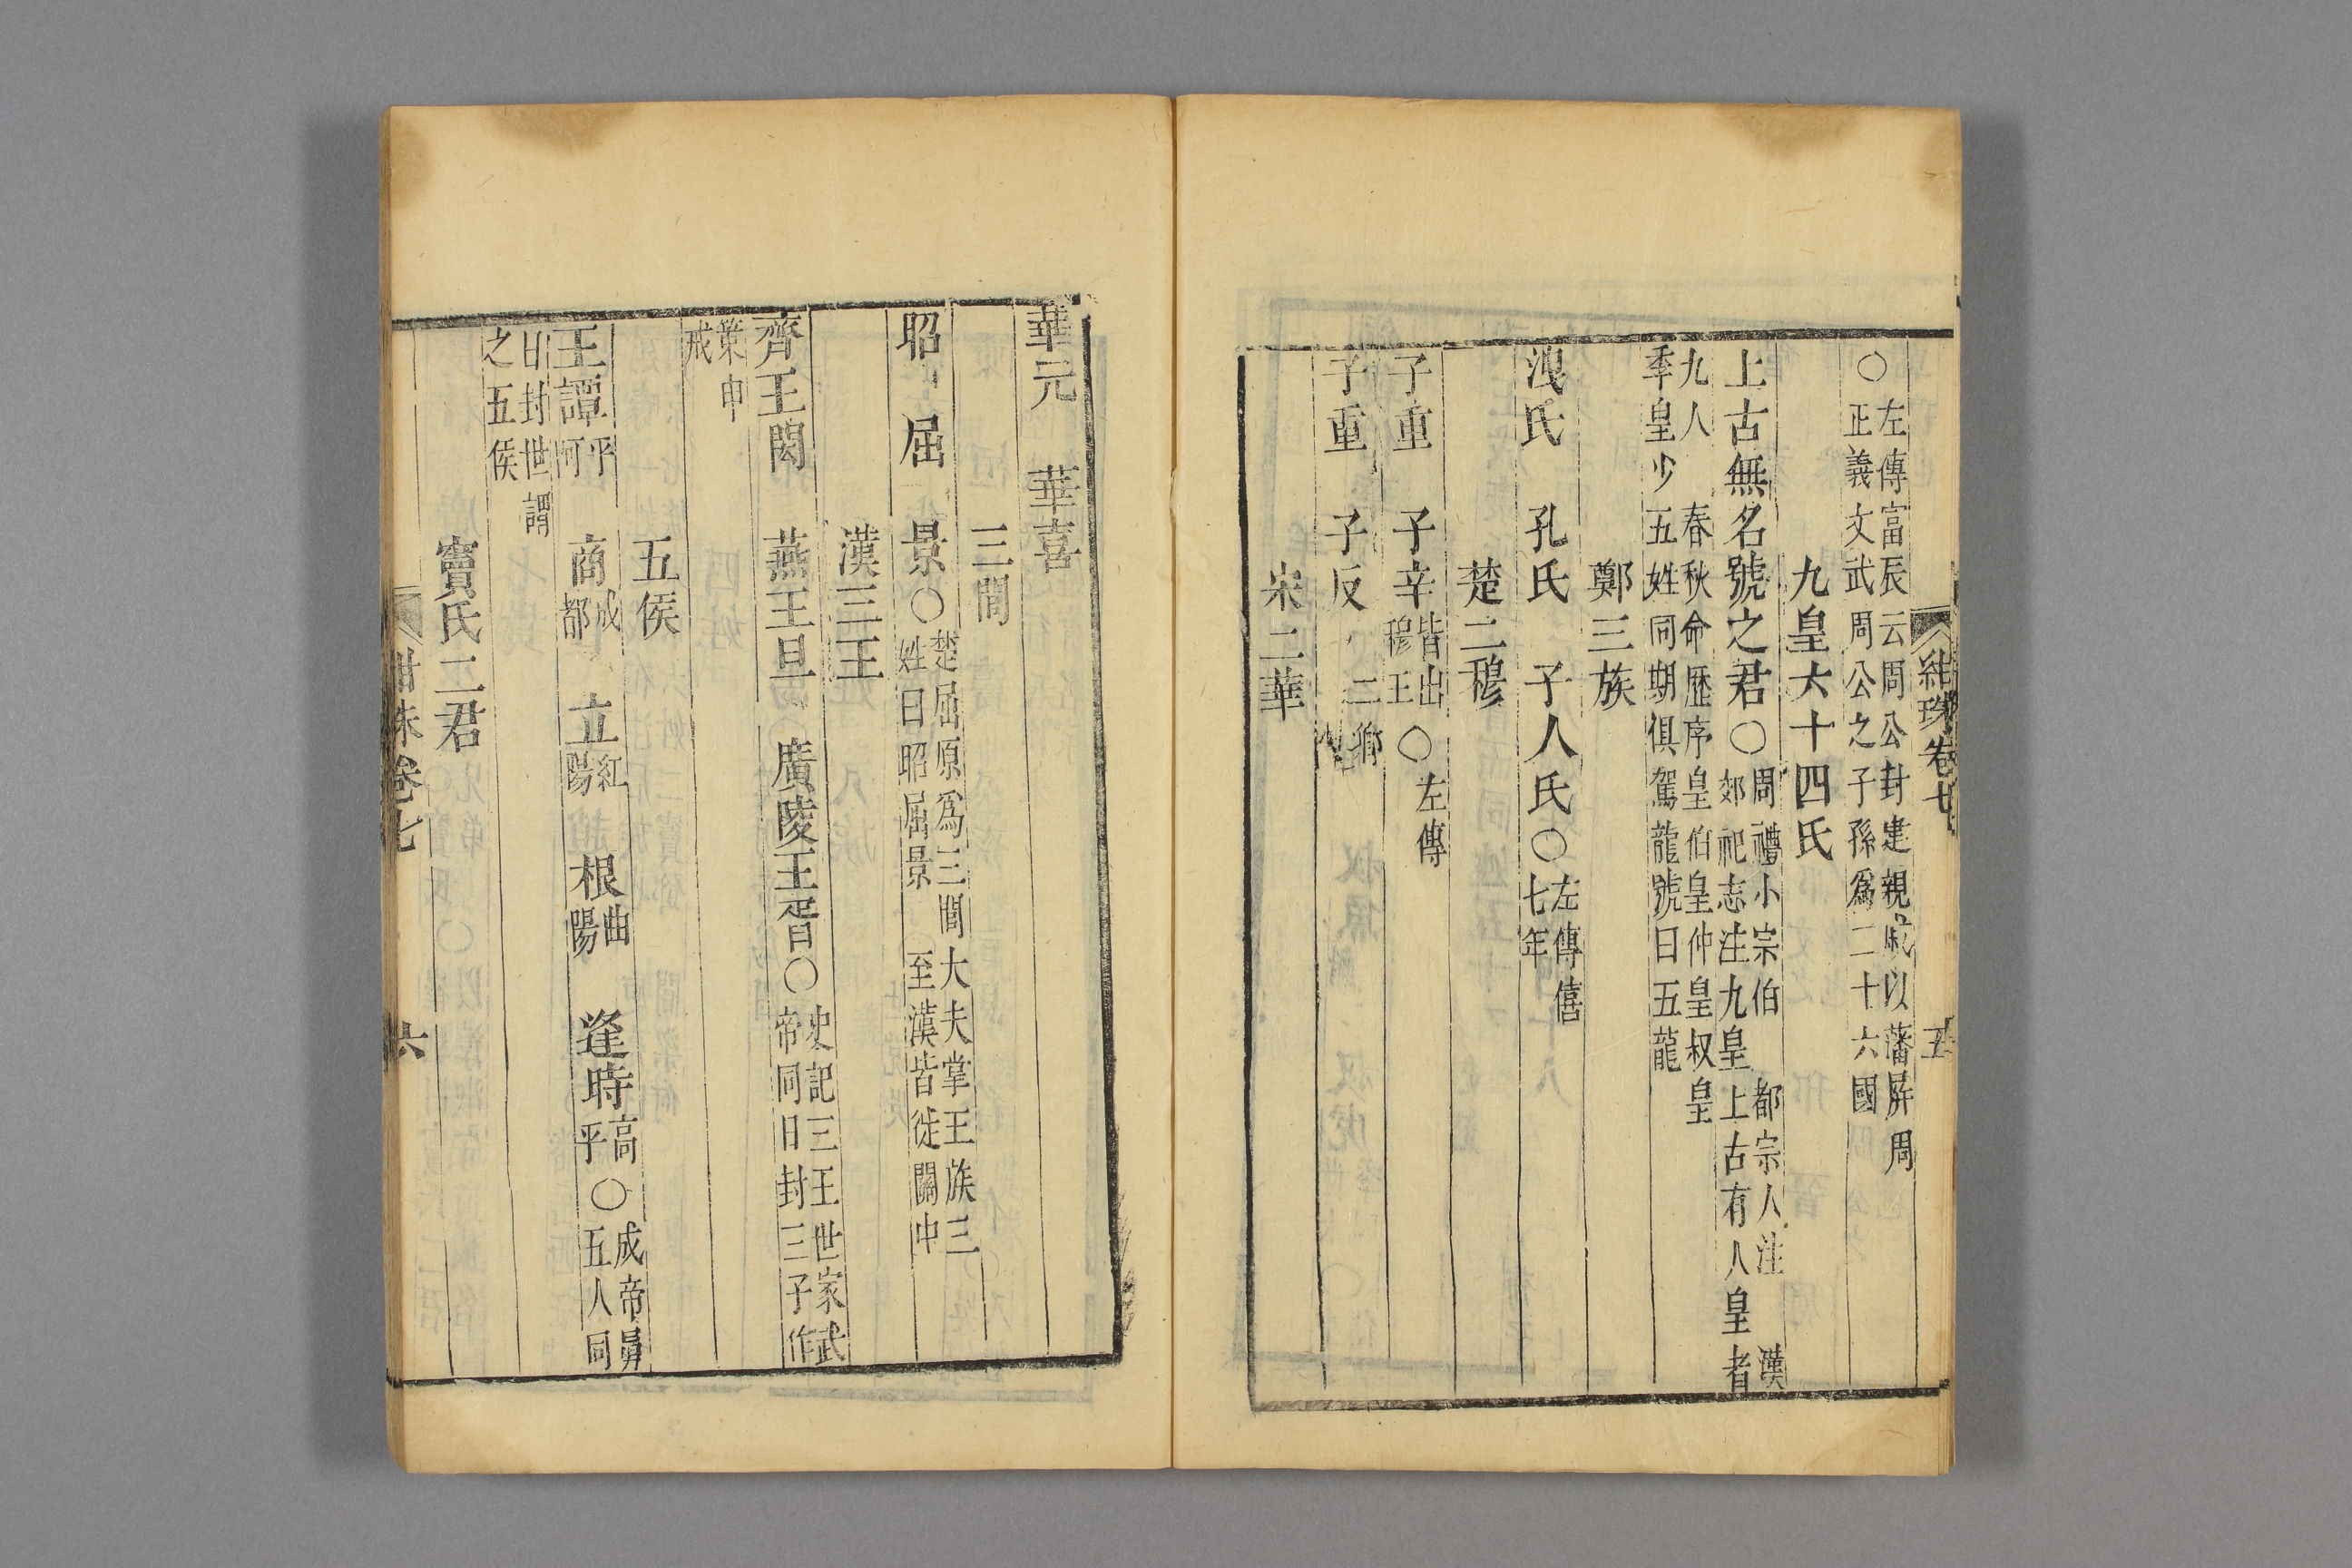 紺珠卷七 五
○左傳富辰云周公封建親戚以藩屏周
正義文武周公之子孫爲二十六國
九皇六十四氏
上古無名號之君○周禮小宗伯 都宗人注 漢
郊祀志注九皇上古有人皇者
九人 春秋命歷序皇伯皇仲皇叔皇
季皇少五姓同期俱駕龍號曰五龍
鄭三族
洩氏 孔氏 子人氏○左傳僖
七年
楚二穆
子重 子辛皆出
穆王○左傳
子重 子反 二卿
宋二華
華元 華喜
三閭
昭 屈 景○楚屈原爲三閭大夫掌王族三
姓曰昭屈景 至漢皆徙關中
漢三王
齊王閎 燕王旦 廣陵王胥○史記三王世家武
帝同日封三子作
策申
戒
五侯
王譚平
阿 商成
都 立紅
陽 根曲
陽 逢時高
平○成帝舅
五人同
日封世謂
之五侯
竇氏三君
紺珠卷七 六